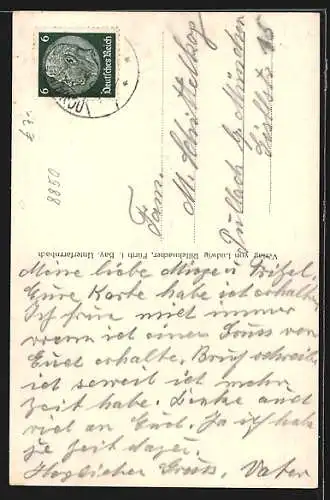 6 Deutsches Reich 6
8850
Fam.
M. Schüttelkopf
Pullach b. München
15
Verlag von Ludwig Riffelmacher, Fürth i. Bay. Unterfarrnbach
Meine liebe
Eure Karte habe ich erhalten
Ich freue mich immer
wenn ich einen Gruss von
Euch erhalte. Brief schreibe
ich soweit ich mehr
Zeit habe. Denke auch
viel an Euch. Ja ich habe
je zeit dazu.
Herzlicher Gruss, Vater